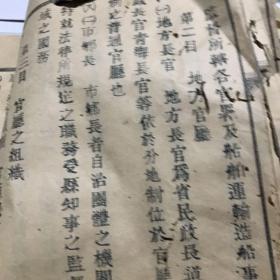 政府所轄各官署及船舶運輸造船事
第二目　地方官廳
(一)地方長官　地方長官爲省民政長道
長官青海長官等依於分地制位於官廳
制之普通官廳也
(二)市鄉長　市鄉長者自治團體之機關
時就法律所規定之職務受縣知事之監
域之國務
第三目　官廳之組織